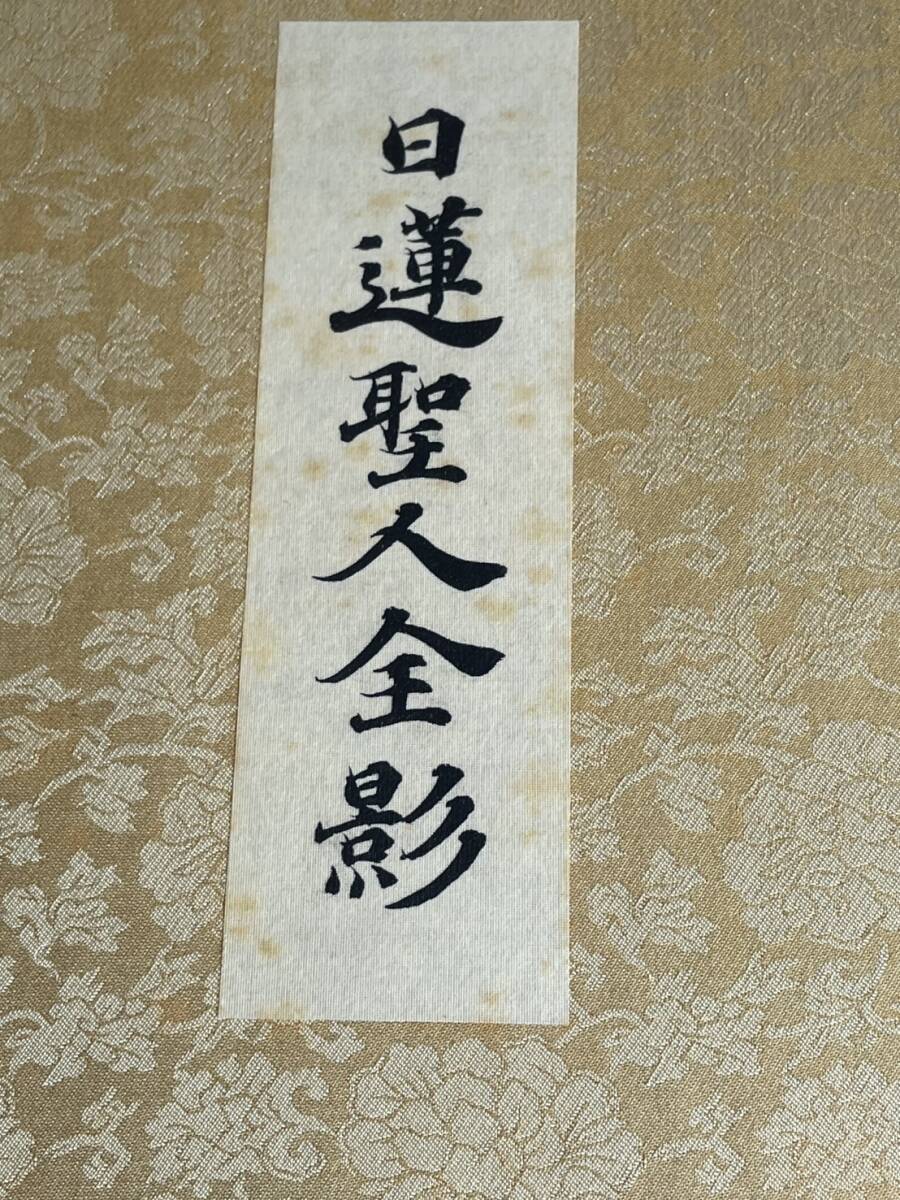 日蓮聖人全影